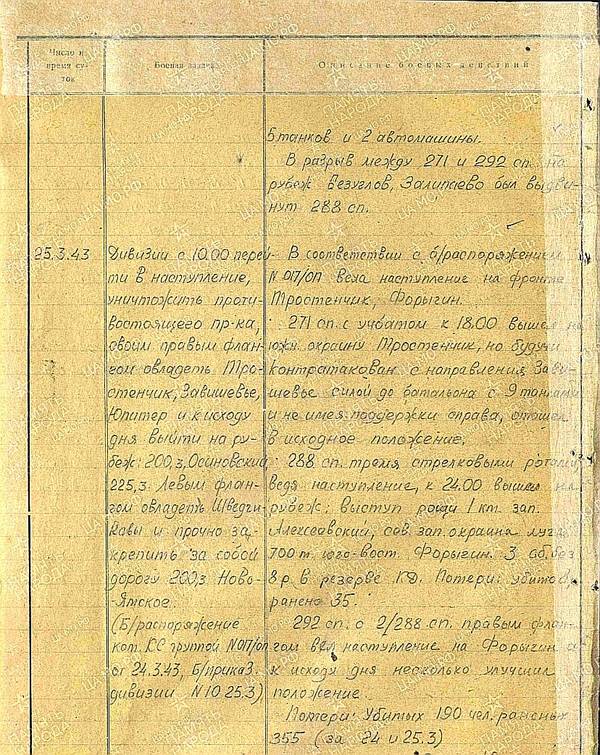 Число и
время су-
ток
Боевая задача
Описание боевых действий
5 танков и 2 автомашины.
В разрыв между 271 и 292 сп. на
рубеж Безуглов, Залипаево был выдви-
нут 288 сп.
25.3.43
Дивизии с 10.00 перей-
ти в наступление,
уничтожить проти-
востоящего пр-ка,
своим правым флан-
гом овладеть Тро-
стенчик, Завишевье,
Юпитер и к исходу
дня выйти на ру-
беж: 200,3, Осиновский,
225,3. Левым флан-
гом овладеть Шведчи-
ковы и прочно за-
крепить за собой
дорогу 200,3 Ново-
Ямское.
(Б/распоряжение
ком. КС группой N017/оп
от 24.3.43, Б/приказ
дивизии N 10 25.3)
В соответствии с б/распоряжением
N 017/ОП вела наступление на фронте
Тростенчик, Форыгин.
271 сп. с учбатом к 18.00 вышел на
южн. окраину Тростенчик, но будучи
контратакован с направления Зави-
шевье силой до батальона с 9 танками
и не имея поддержки справа, отошел
в исходное положение.
288 сп. тремя стрелковыми ротами
ведя наступление, к 24.00 вышел на
рубеж: выступ рощи 1 км. зап.
Алексеевский, сев. зап. окраина
700 м. юго-вост. Форыгин. 3 сб. без
8 р. в резерве КД. Потери: убито 8,
ранено 35.
292 сп. с 2/288 сп. правым флан-
гом вел наступление на Форыгин и
к исходу дня несколько улучшил
положение.
Потери: Убитых 190 чел. раненых
355 (за 24 и 25.3)